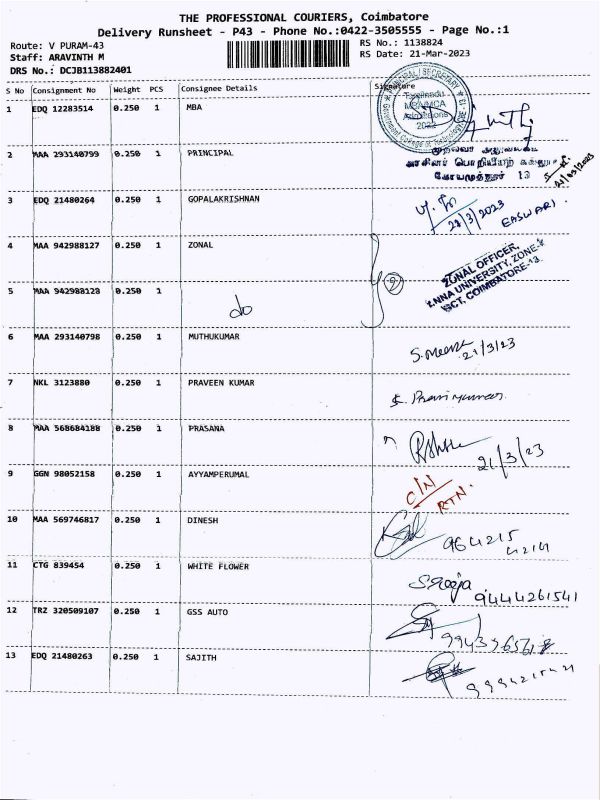 THE PROFESSIONAL COURIERS, Coimbatore
Delivery Runsheet - P43 - Phone No.:0422-3505555 - Page No.:1
Route: V PURAM-43
RS No.: 1138824
Staff: ARAVINTH M
RS Date: 21-Mar-2023
DRS No.: DCJB113882401
S No Consignment No Weight PCS Consignee Details Signature
1 EDQ 12283514 0.250 1 MBA
PRINCIPAL / SECRETARY
Tamilnadu
MBA/MCA
Admissions
2022
2 MAA 293140799 0.250 1 PRINCIPAL
13
21/03/2023
3 EDQ 21480264 0.250 1 GOPALAKRISHNAN
21/3/2023
EASWARI.
4 MAA 942988127 0.250 1 ZONAL
2
ZONAL OFFICER,
ANNA UNIVERSITY, ZONE-
GCT, COIMBATORE-13
5 MAA 942988128 0.250 1
do
6 MAA 293140798 0.250 1 MUTHUKUMAR
S. Meena
21/3/23
7 NKL 3123880 0.250 1 PRAVEEN KUMAR
8 MAA 568684188 0.250 1 PRASANA
21/3/23
9 GGN 98052158 0.250 1 AYYAMPERUMAL
C/N
RTN.
10 MAA 569746817 0.250 1 DINESH
964215
11 CTG 839454 0.250 1 WHITE FLOWER
9444261541
12 TRZ 320509107 0.250 1 GSS AUTO
13 EDQ 21480263 0.250 1 SAJITH